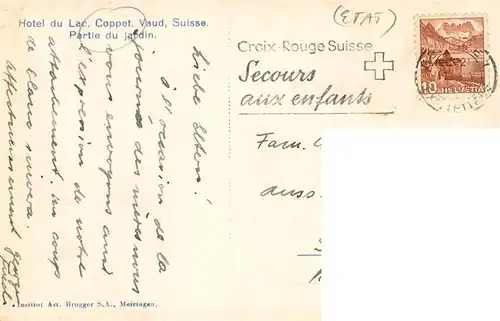 Hotel du Lac, Coppet, Vaud, Suisse.
Partie du jardin.
(ETAT)
Croix-Rouge Suisse
Secours
aux enfants
10 HELVETIA
Liebe Eltern!
à l'occasion de la
journée des mères nous
vous envoyons avec
l'expression de notre
attachement. un coup
de
affectueusement
Fam.
auss.
Institut Art. Brugger S.A., Meiringen.